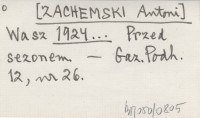 [ZACHEMSKI Antoni]
Wasz 1924... Przed
sezonem. — Gaz. Podh.
12, nr 26.